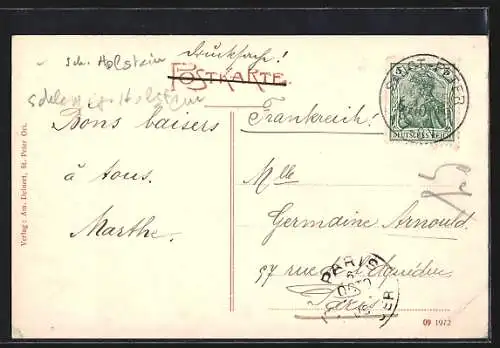 Sch. Holstein
Drucksache!
POSTKARTE.
Schleswig-Holstein
Bons baisers
à tous.
Marthe.
Frankreich!
Mlle
Germaine Arnould.
57 rue de l'Aqueduc
Paris
ST. PETER
DEUTSCHES REICH
PARIS
DISTRIBUTION
Verlag: Am. Deinert, St. Peter Ort.
09 1972